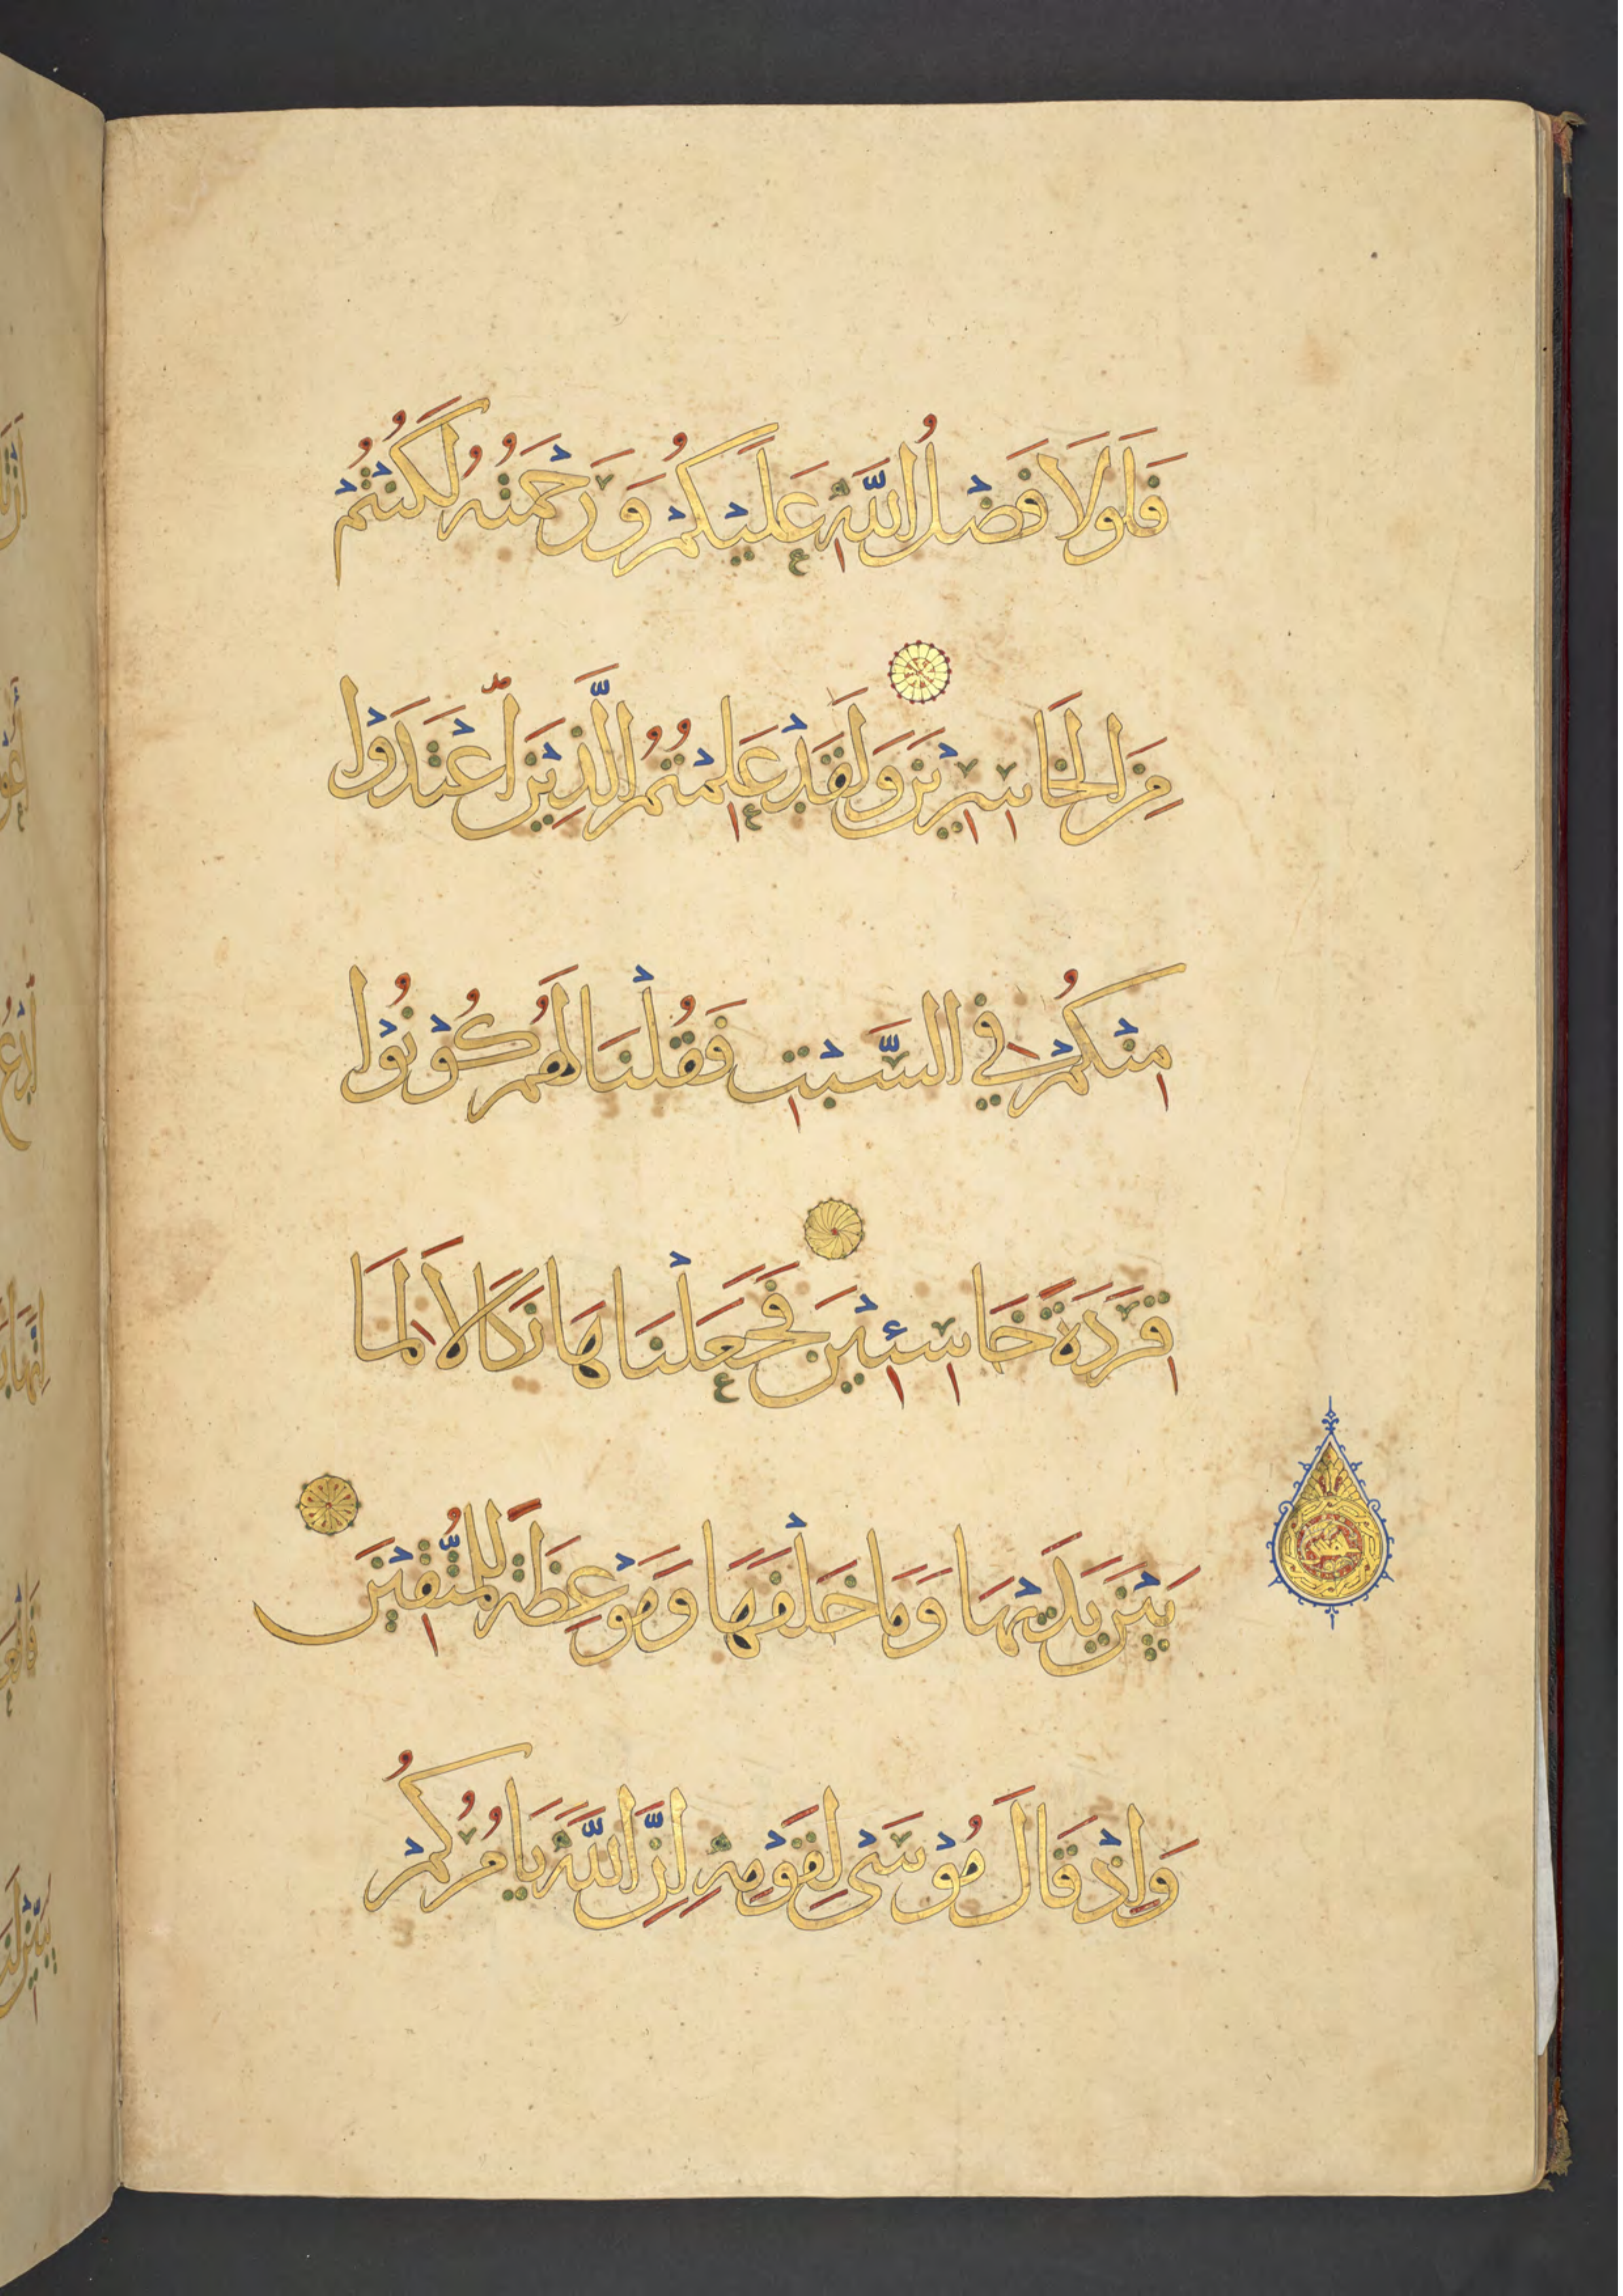 فَلَوْلَا فَضْلُ اللَّهِ عَلَيْكُمْ وَرَحْمَتُهُ لَكُنْتُمْ
مِنَ الْخَاسِرِيْنَ وَلَقَدْ عَلِمْتُمُ الَّذِيْنَ اعْتَدَوْا
مِنْكُمْ فِي السَّبْتِ فَقُلْنَا لَهُمْ كُوْنُوْا
قِرَدَةً خَاسِئِيْنَ فَجَعَلْنَاهَا نَكَالًا لِمَا
بَيْنَ يَدَيْهَا وَمَا خَلْفَهَا وَمَوْعِظَةً لِلْمُتَّقِيْنَ
وَإِذْ قَالَ مُوْسَى لِقَوْمِهِ إِنَّ اللَّهَ يَامُرُكُمْ